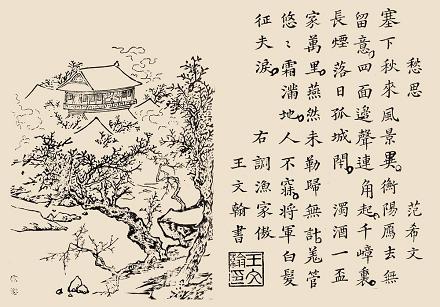 愁思 范希文
塞下秋來風景異。衡陽鴈去無
留意。四面邊聲連角起。千嶂裏。
長煙落日孤城閉。 濁酒一盃
家萬里。燕然未勒歸無計。羌管
悠〻霜滿地。人不寐。將軍白髮
征夫淚。 右調漁家傲
王文翰書
王文翰印